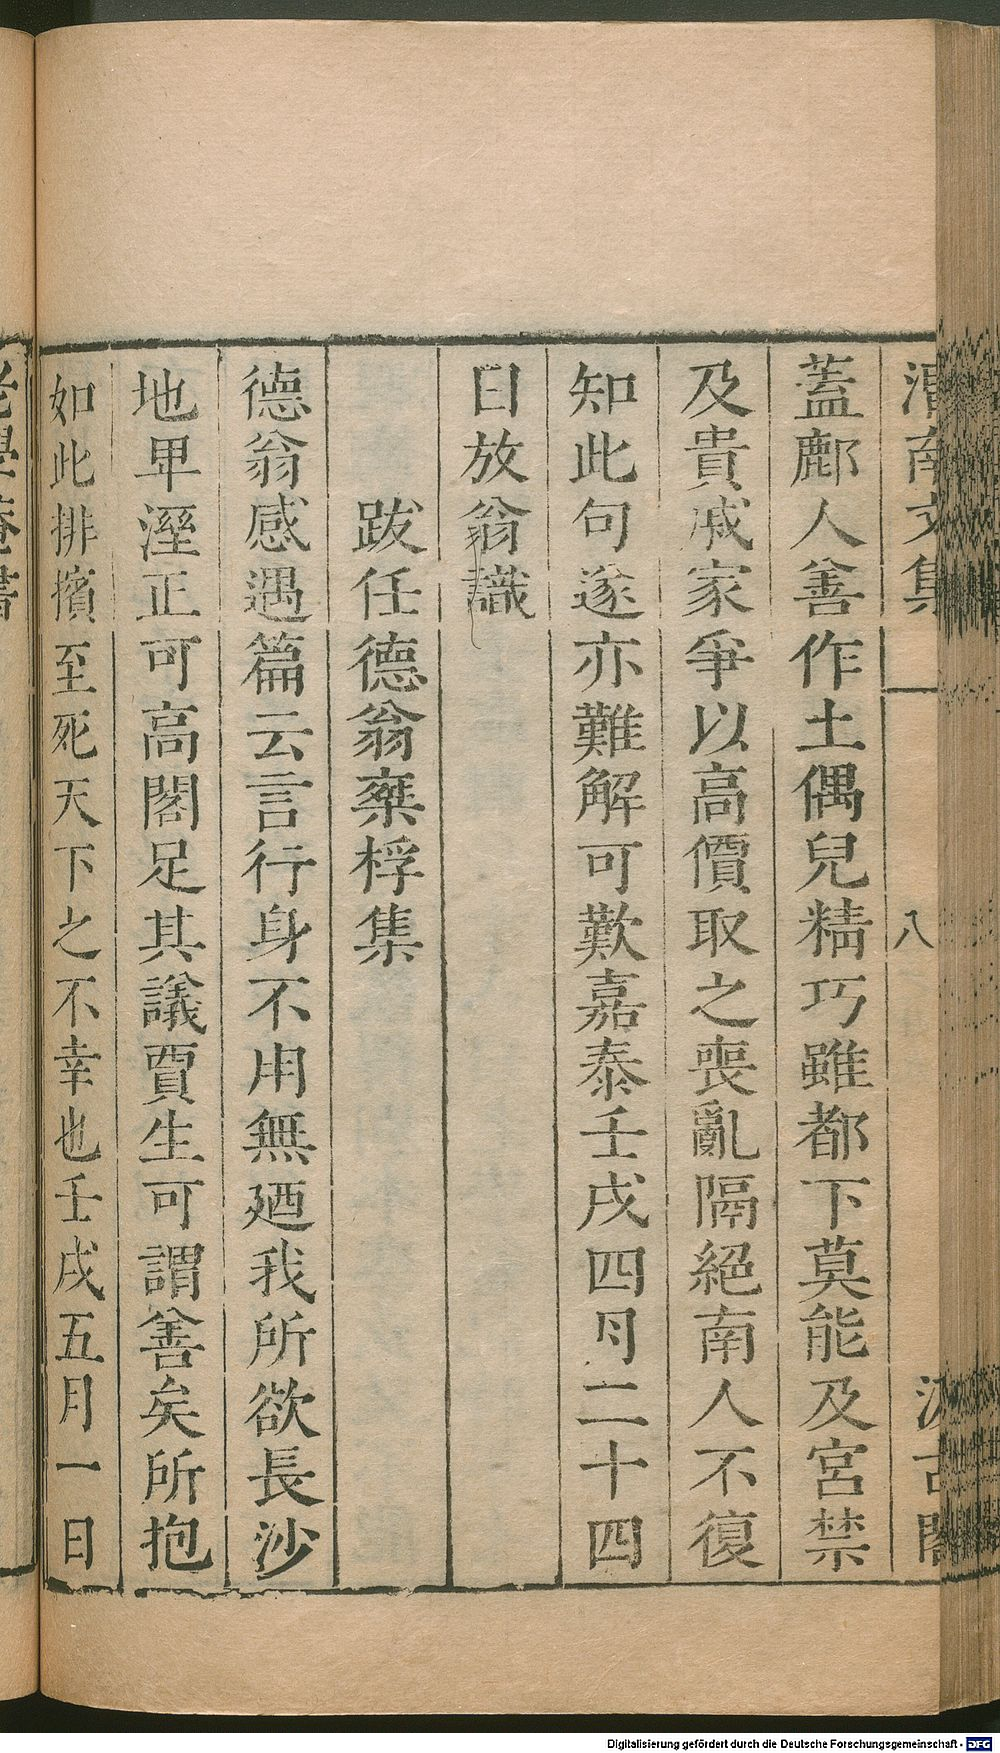 渭南文集
八
汲古閣
蓋鄜人善作土偶兒精巧雖都下莫能及宮禁
及貴戚家爭以高價取之喪亂隔絕南人不復
知此句遂亦難解可歎嘉泰壬戌四月二十四
日放翁識
跋任德翁乘桴集
德翁感遇篇云言行身不用無廼我所欲長沙
地卑溼正可高閣足其議賈生可謂善矣所抱
如此排擯至死天下之不幸也壬戌五月一日
老學庵書
Digitalisierung gefördert durch die Deutsche Forschungsgemeinschaft - DFG